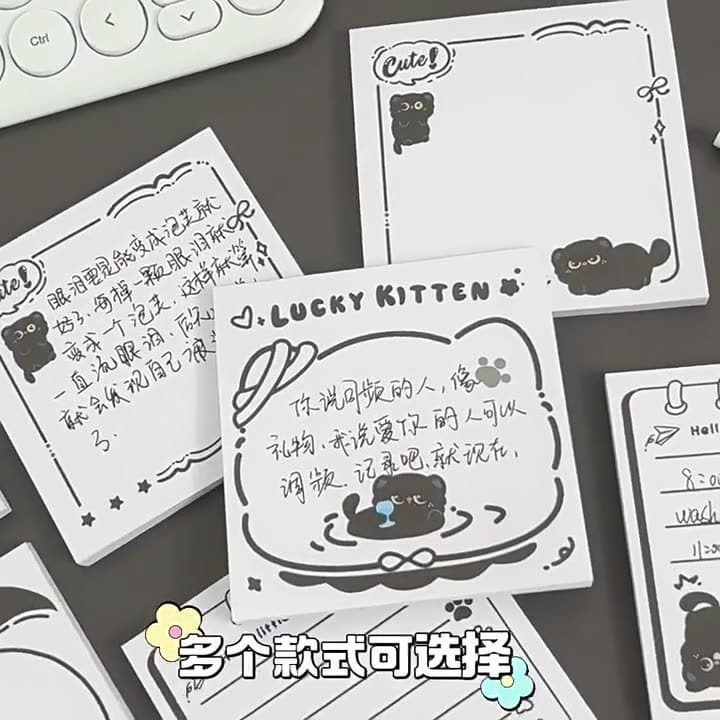 Ctrl
Cute!
LUCKY KITTEN
你说同频的人,像
礼物、我说爱你的人可以
调频、记录吧、就现在,
眼泪要是能变成泡芙就
好了,每掉一颗眼泪就
变成一个泡芙,这样就算
一直流眼泪,
就会发现自己
了.
Hell
8:00
wash
11:00
多个款式可选择